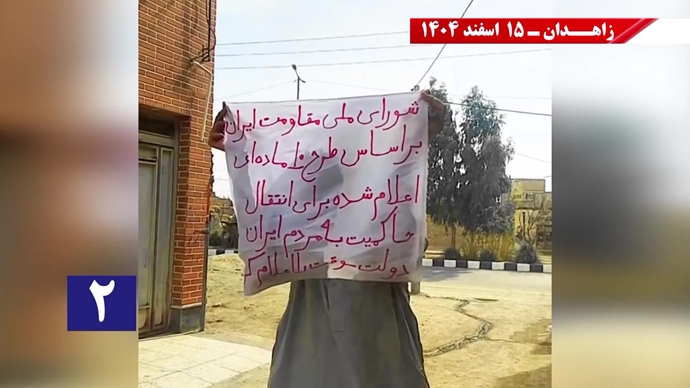 زاهـدان ـ ۱۵ اسفند ۱۴۰۴
شورای ملی مقاومت ایران
براساس طرح ۱۰ ماده‌ای
اعلام شده برای انتقال
حاکمیت به مردم ایران
دولت موقت را اعلام کر
۲